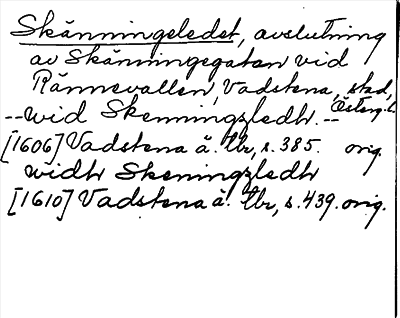 Skänningeledet, avslutning
av Skänningegatan vid
Rännevallen, Vadstena, stad,
Österg.l.
-- wid Skenningzledh. --
[1606] Vadstena ä. tbr, s. 385. orig.
widh Skeningzledh
[1610] Vadstena ä. tbr, s. 439. orig.